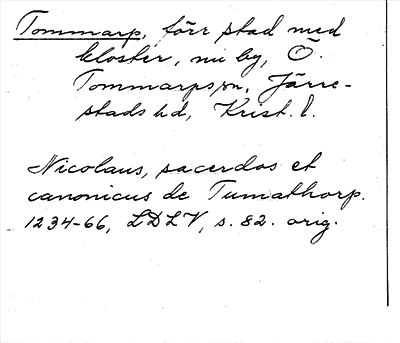 Tommarp, förr stad med
kloster, nu by, Ö.
Tommarps sn, Järre-
stads hd, Krist. l.
Nicolaus, sacerdos et
canonicus de Tumathorp.
1234-66, LDLV, s. 82. orig.